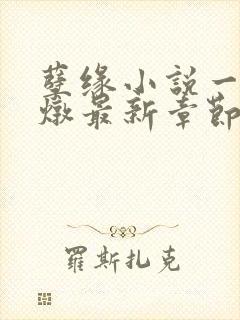 孽缘小説一
燉最新章節
羅斯扎克